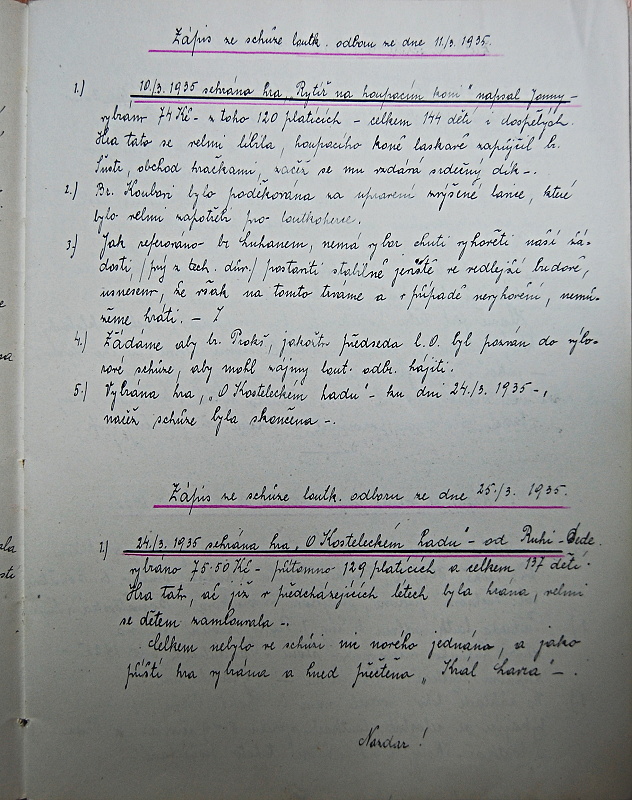 Zápis ze schůze loutk. odboru ze dne 11/3. 1935.
1.) 10/3. 1935 sehrána hra „Rytíř na houpacím koni" napsal Jonny –
vybráno 74 Kč – z toho 120 platících – celkem 144 dětí i dospělých.
Hra tato se velmi líbila, houpacího koně laskavě zapůjčil br.
Šustr, obchod hračkami, začež se mu vzdává srdečný dík –.
2.) Br. Koubovi bylo poděkováno za upravení zvýšené lavice, které
bylo velmi zapotřebí pro loutkoherce.
3.) Jak referováno br. Luhanem, nemá výbor chuti vyhověti naší žá-
dosti /prý z tech. dův./ postaviti stabilně jeviště ve vedlejší budově,
usneseno, že však na tomto trváme a v případě nevyhovění, nemů-
žeme hráti. –
4.) Žádáme aby br. Prokš, jakožto předseda l. O. byl pozván do výbo-
rové schůze, aby mohl zájmy lout. odbr. hájiti.
5.) Vybrána hra, „O Kosteleckém hadu" – ku dni 24./3. 1935 –,
načež schůze byla skončena –.
Zápis ze schůze loutk. odboru ze dne 25/3. 1935.
1.) 24./3. 1935 sehrána hra „O Kosteleckém hadu" – od Ruhi –
vybráno 75·50 Kč – přítomno 129 platících a celkem 137 dětí.
Hra tato, ač již v předcházejících létech byla hrána, velmi
se dětem zamlouvala –.
Celkem nebylo ve schůzi nic nového jednáno, a jako
příští hra vybrána a hned přečtena „Král Lávra" –.
Nazdar!
ala